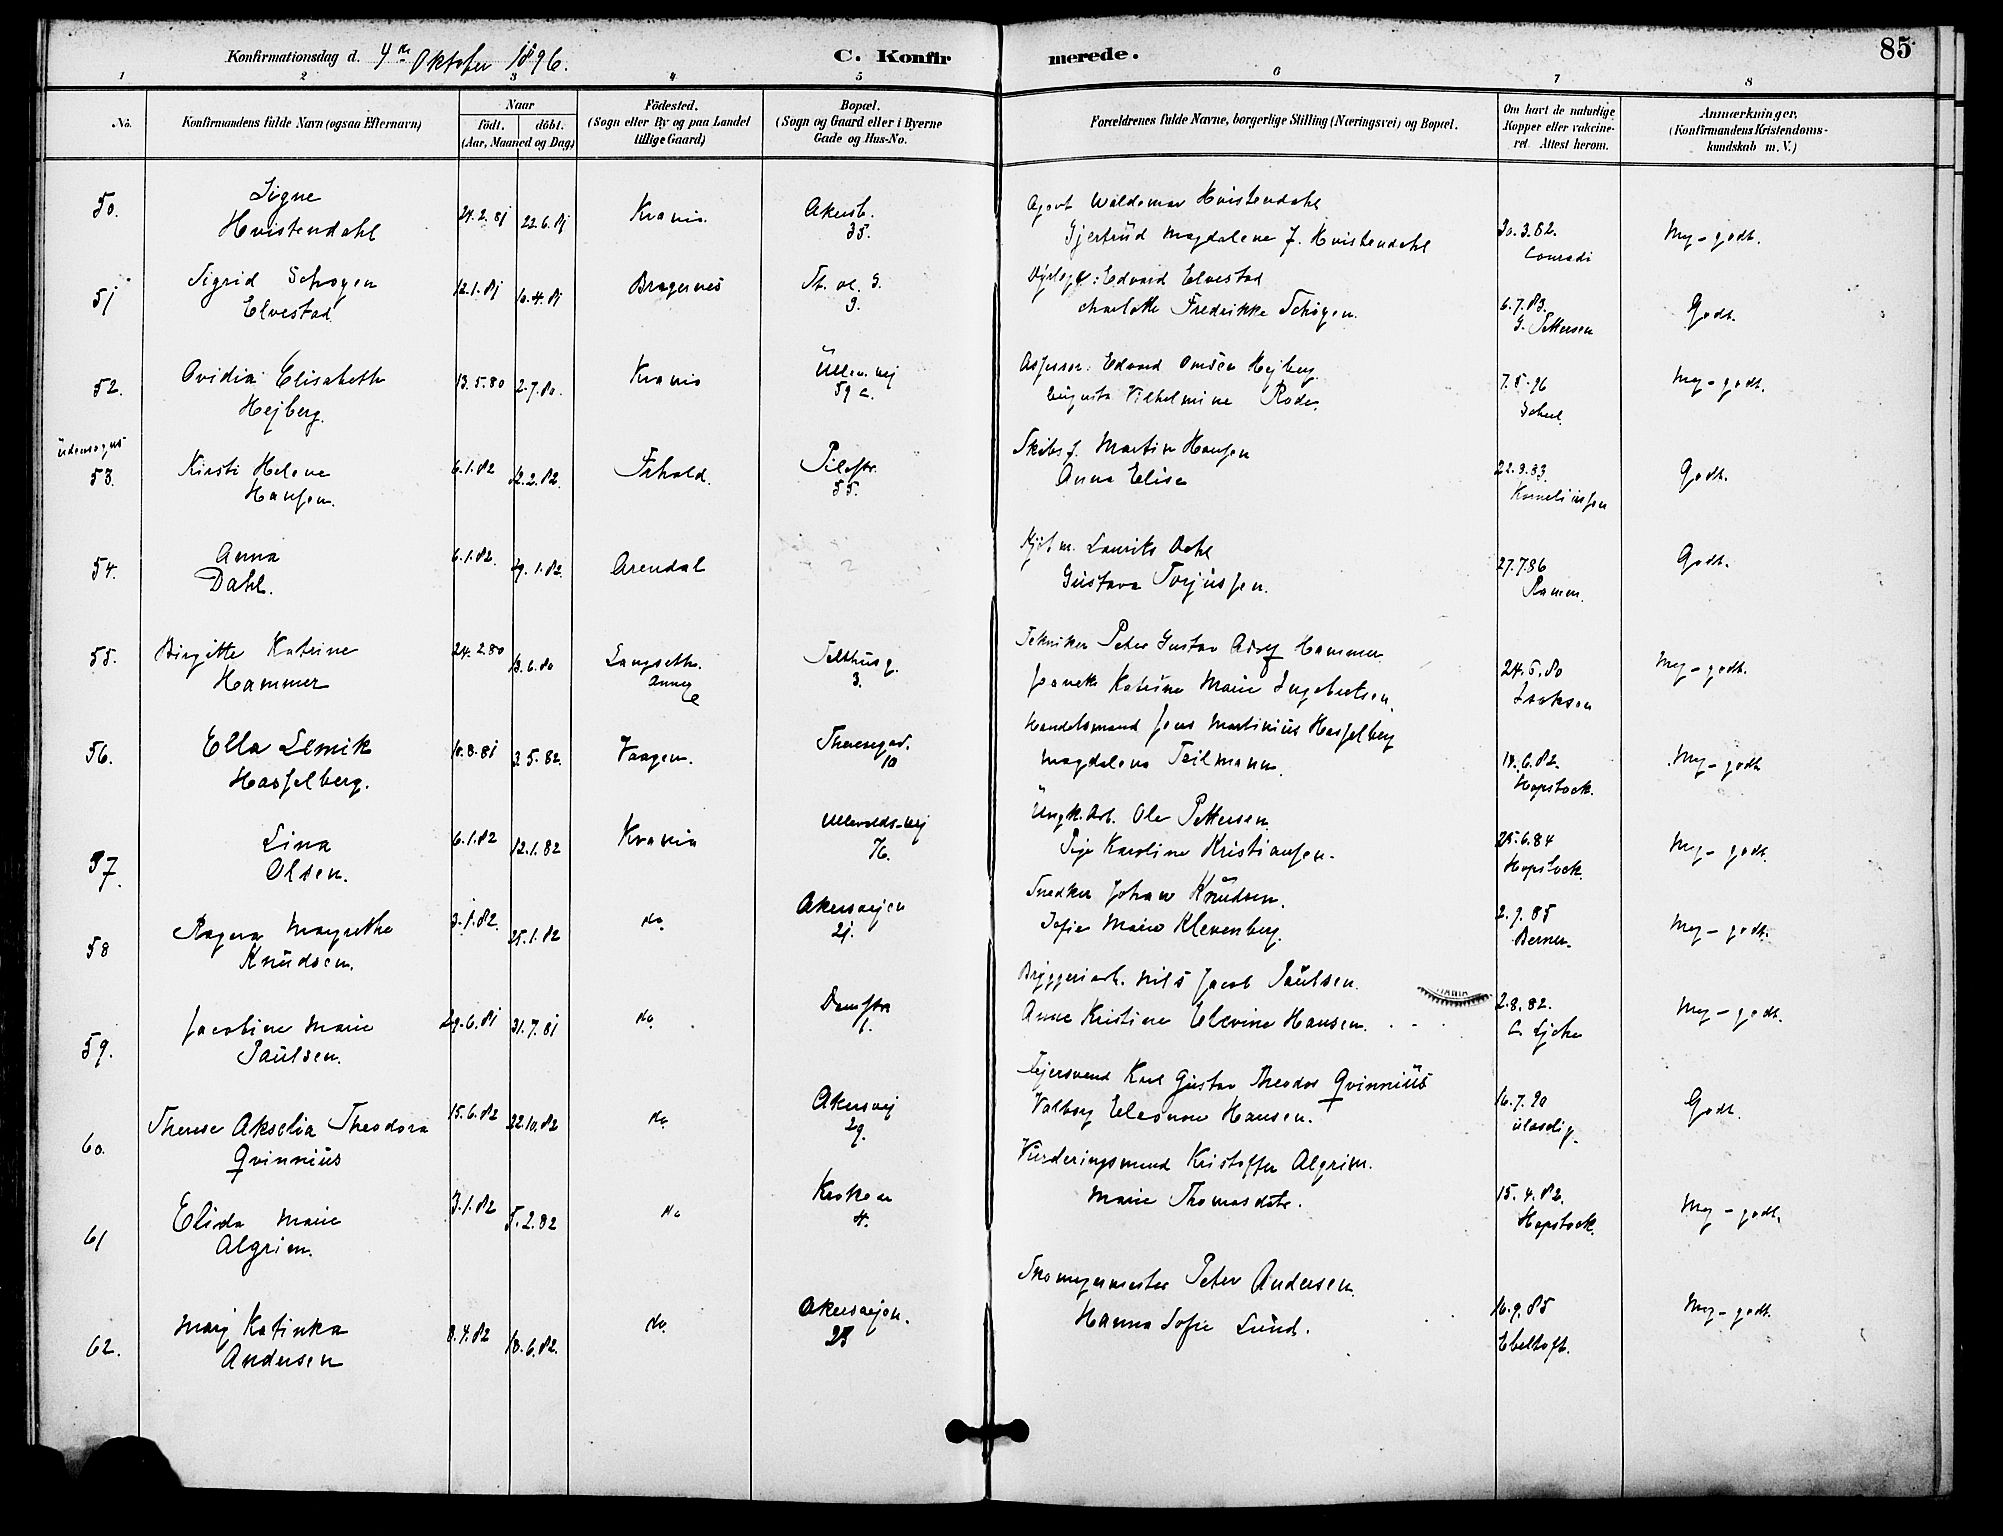 Konfirmationsdag d. 4de Oktober 1896.
C. Konfirmerede.
85
1 2 3 4 5 6 7 8
No.
Konfirmandens fulde Navn (ogsaa Efternavn)
Naar
født. døbt.
(Aar, Maaned og Dag)
Fødested.
(Sogn eller By og paa Landet
tillige Gaard)
Bopæl.
(Sogn og Gaard eller i Byerne
Gade og Hus-No.
Forældrenes fulde Navne, borgerlige Stilling (Næringsvei) og Bopæl.
Om havt de naturlige
Kopper eller vakcine-
ret. Attest herom.
Anmærkninger,
(Konfirmandens Kristendoms-
kundskab m. V.)
50. Signe 24.2.81 22.6.81 Krania. Akersb. Agent Waldemar Hvistendahl 30.3.82. Mg-godt.
Hvistendahl 35. Gjertrud Magdalene J. Hvistendahl Conradi
51 Sigrid Schøyen 12.1.81 10.4.81 Bragernes St. ol. G. Edvard Elvestad 6.7.83. Godt.
Elvestad 3. Charlotte Fredrikke Schøyen. G. Pettersen
52. Ovidia Elisabeth 13.5.80 2.7.80. Krania Ullev. vej Assessor. Edvard Omsen Hejberg 7.5.96 Mg-godt.
Hejberg. 59 c. Augusta Vilhelmine Rode. Scheel.
udensogns
53. Kirsti Helene 6.1.82 12.2.82. Frhald. Pilestr. Skibsf. Martin Hansen 22.9.83. Godt.
Hansen. 55. Anna Elise Korneliussen
54. Anna 6.1.82. 29.1.82. Arendal Kjøbm. Lauritz Dahl 27.7.86 Godt.
Dahl. Gustava Torjussen. Ramm.
55. Birgitte Katrine 24.2.80 13.6.80 Langseth. Telthusg. Tekniker Peter Gustav Adolf Hammer 24.5.80 Mg-godt.
Hammer annex 3. Jeanette Katrine Marie Ingebretsen. Isaksen
56. Ella Lemik 10.8.81 3.5.82. Vaagen. Theresegad. Handelsmand Jens Martinius Hasselberg 19.6.82. Mg-godt
Hasselberg. 10 Magdalena Teilmann. Hopstock.
57. Lina 6.1.82 12.1.82 Krania Ullevolds-vej Ungk. Arb. Ole Pettersen 25.6.84 Mg-godt.
Olsen. 76. Pige Karoline Kristiansen. Hopstock.
58 Ragna Margrethe 3.1.82. 25.1.82 do. Akersvejen Snedker Johan Knudsen. 2.9.85 Mg-godt.
Knudsen. 21. Sofie Marie Klevenberg. Berner.
59. Jacobine Marie 29.6.81 31.7.81 do. Damstr. Bryggeriarb. Nils Jacob Paulsen. 2.8.82. Mg-godt.
Paulsen. 1. Anne Kristine Elevine Hansen.
60. Therese Akselia Theodora 15.6.82 22.10.82 do. Akersvej Karl Gustav Theodor Qvinnius 16.7.90 Godt.
Qvinnius 29. Valborg Eleonore Hansen. ulæselig.
61 Elida Marie 3.1.82 5.2.82 do Kroken Vurderingsmand Kristoffer Algrim. 15.4.82. Mg-godt.
Algrim. 4. Marie Thomasdatr. Hopstock.
62. Marj Katinka 8.4.82 18.6.82. do. Akersvejen. Skomagermester Peter Andersen. 16.9.85 Mg-godt.
Andersen 28 Hanna Sofie Lund. Ebeltoft.